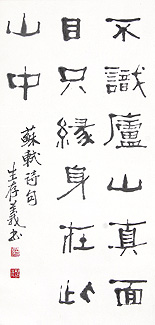 不識廬山真面
目只緣身在此
山中
蘇軾詩句
存義书